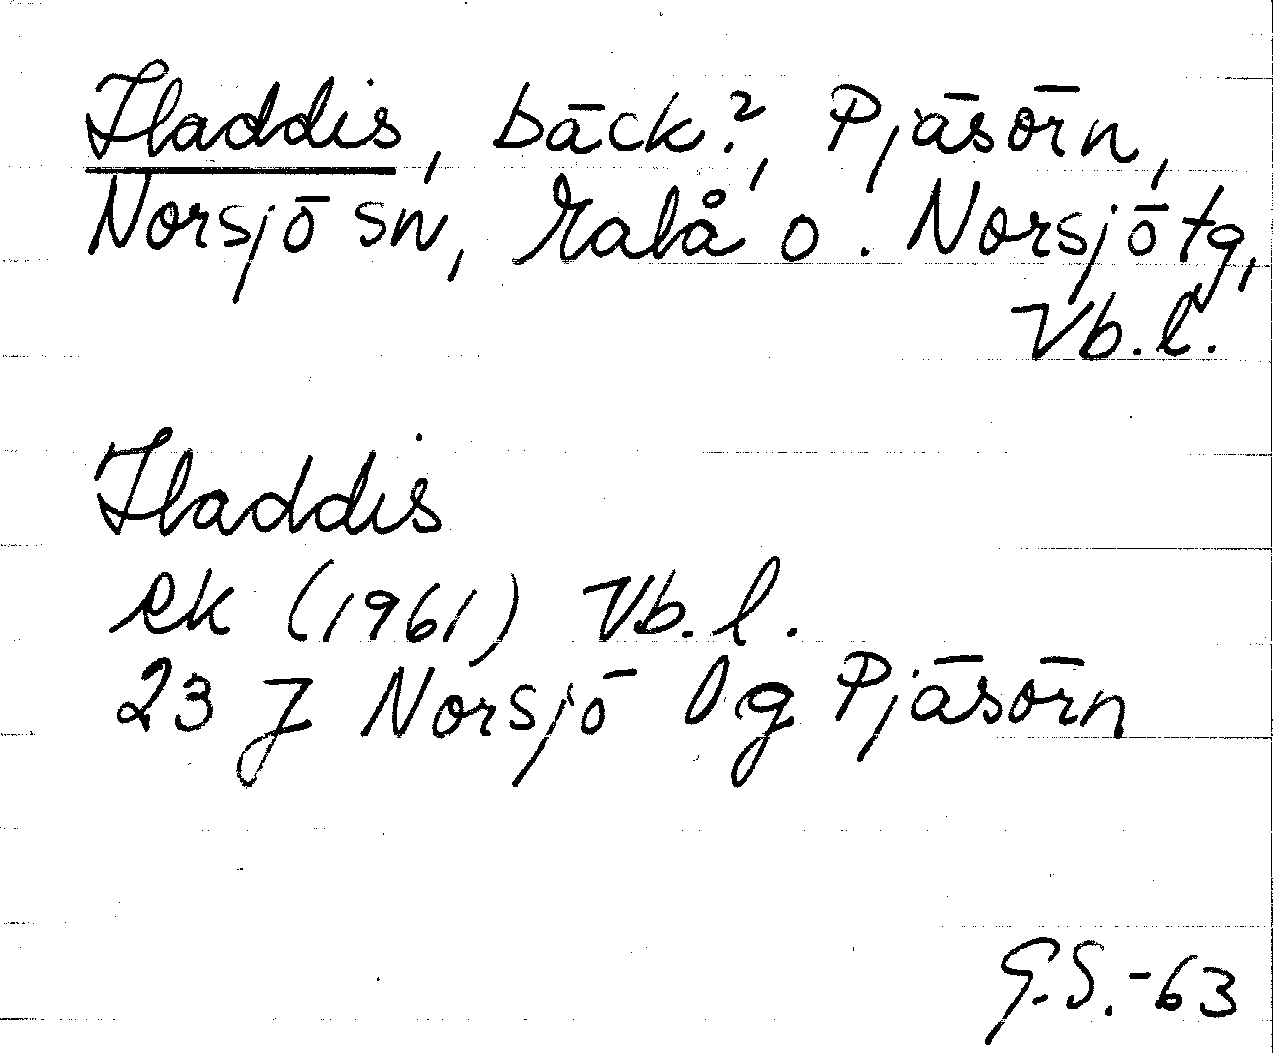 Fladdis, bäck?, Pjäsörn,
Norsjö sn, Malå o. Norsjö tg,
Vb.l.
Fladdis
ek (1961) Vb.l.
23 J Norsjö l g Pjäsörn
G.S.-63